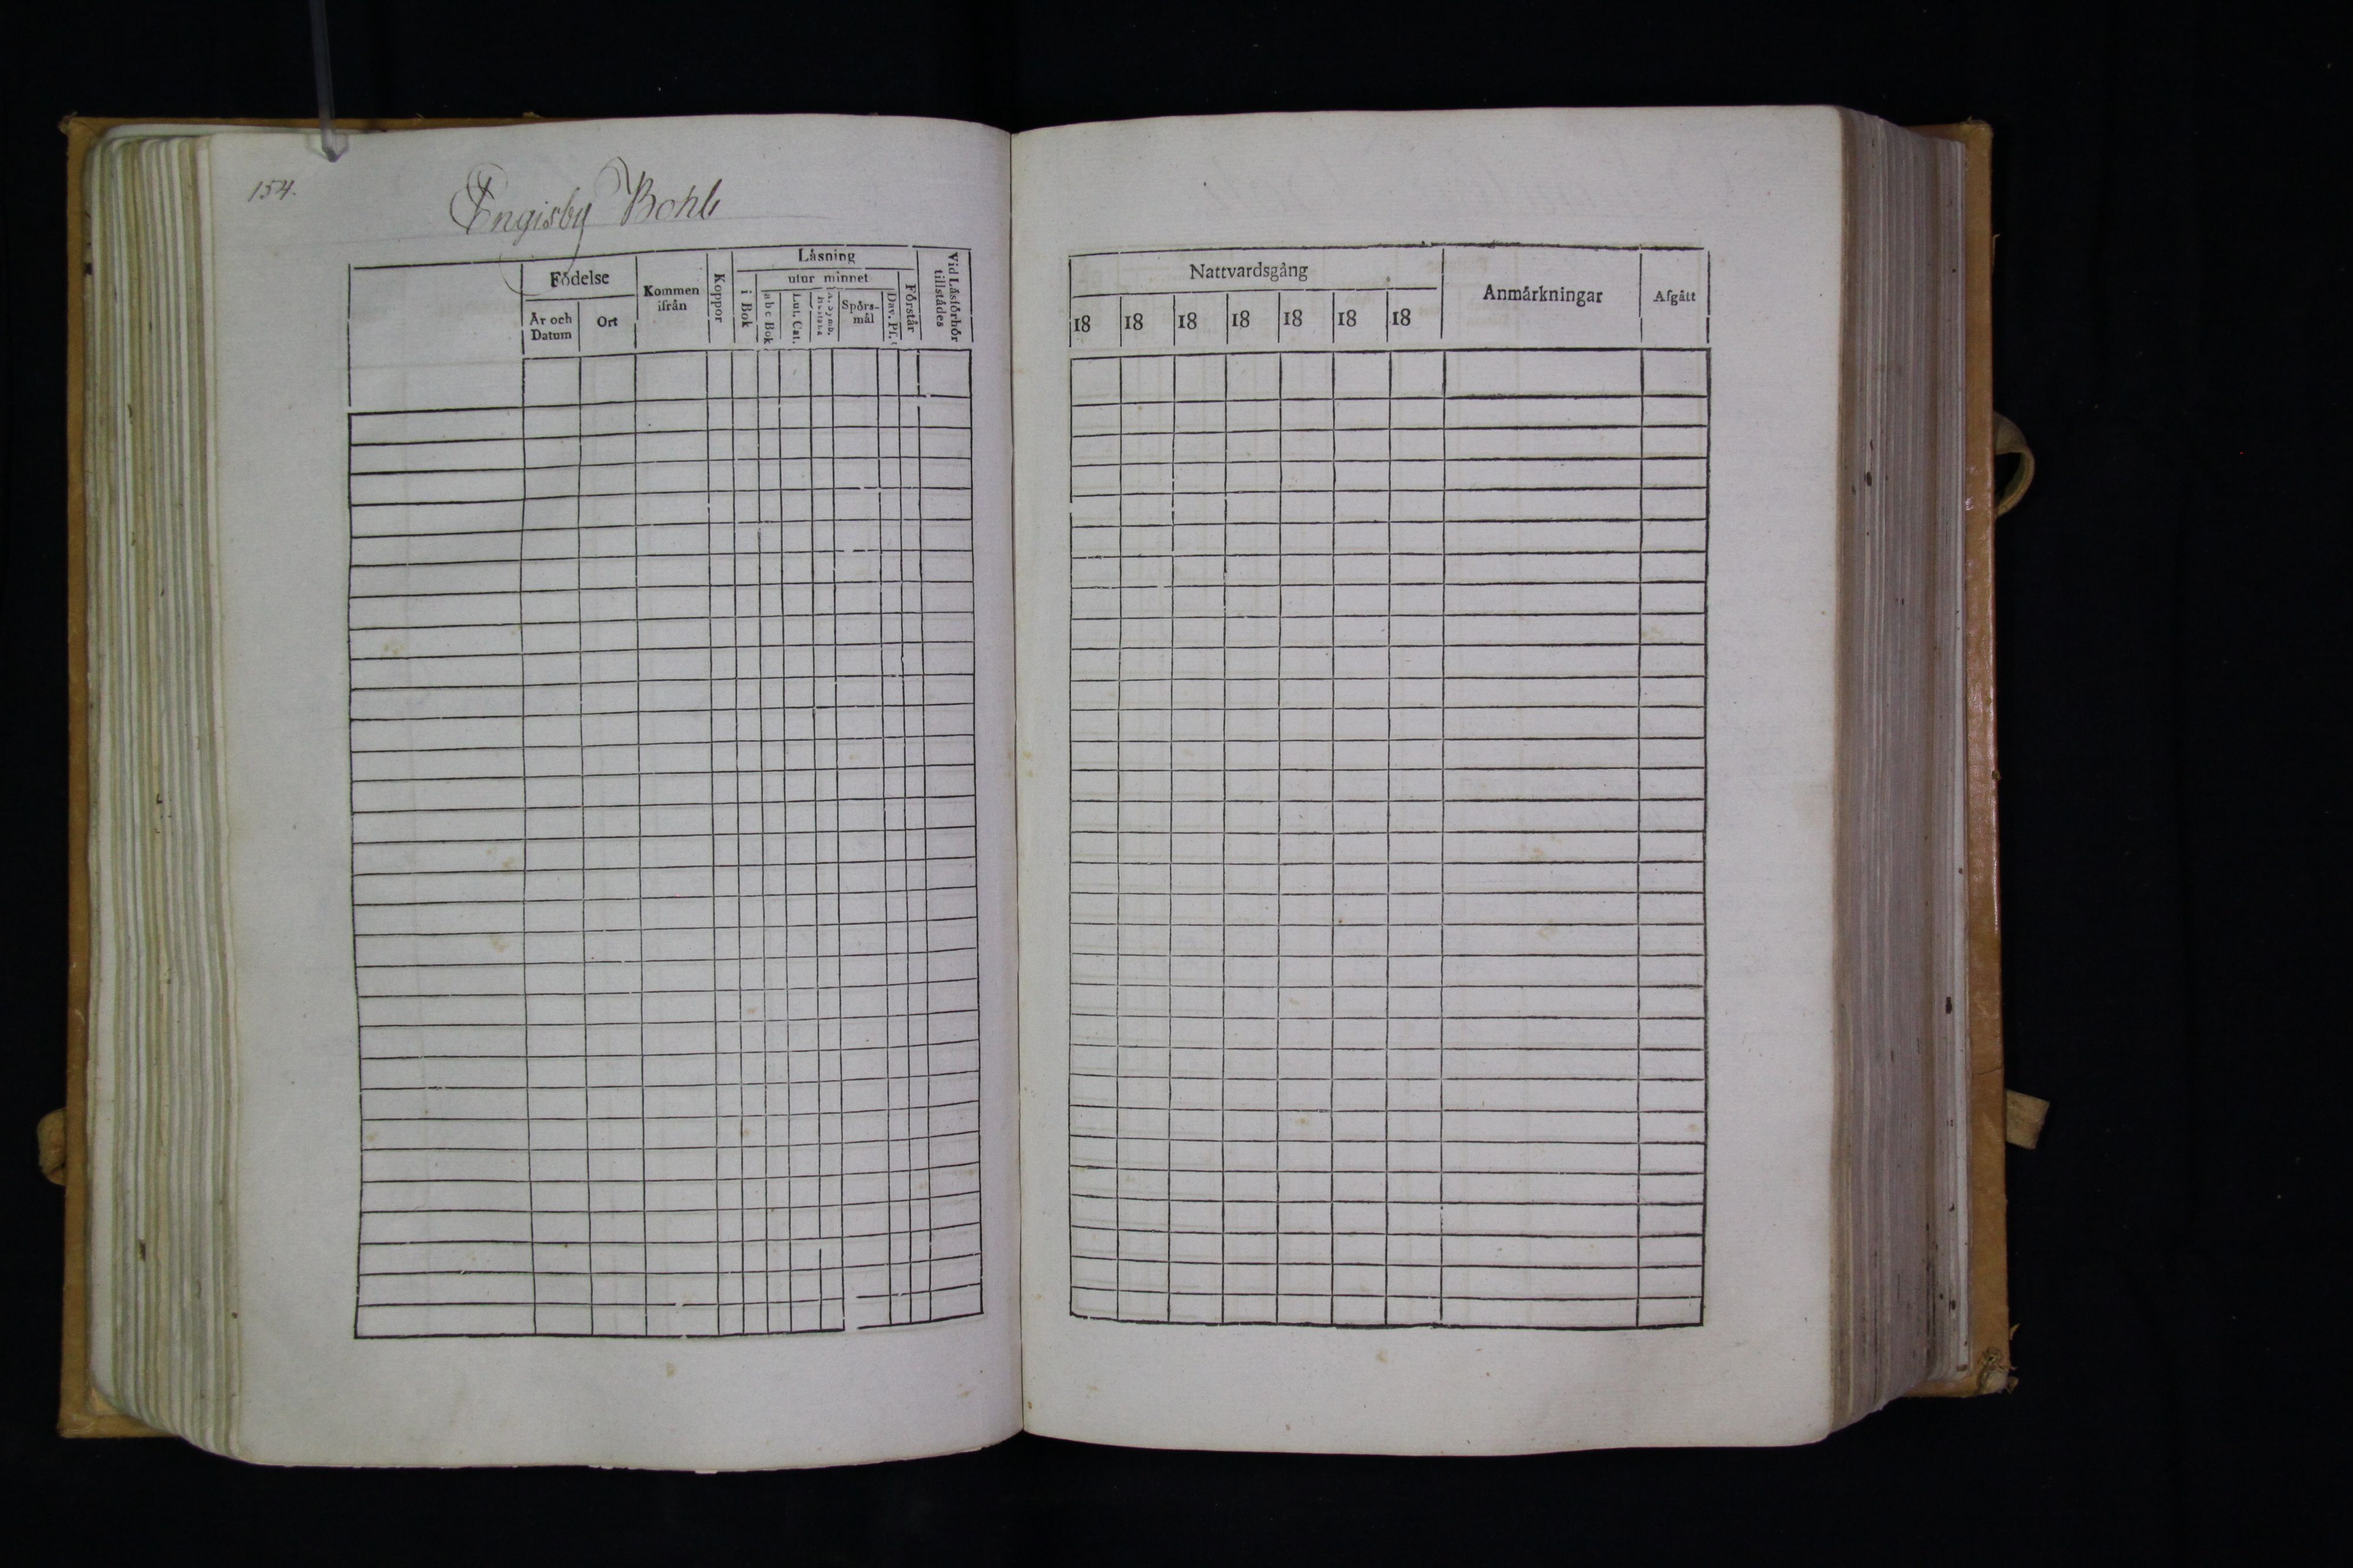 154.
Engisby Bohl
Födelse
År och Datum
Ort
Kommen ifrån
Koppor
Läsning
i Bok
utur minnet
a b c Bok
Lut. Cat.
Spörs-mål
Dav. Ps.
Förstår
Vid Läsförhör tillstädes
Nattvardsgång
18 18 18 18 18 18 18
Anmärkningar
Afgått